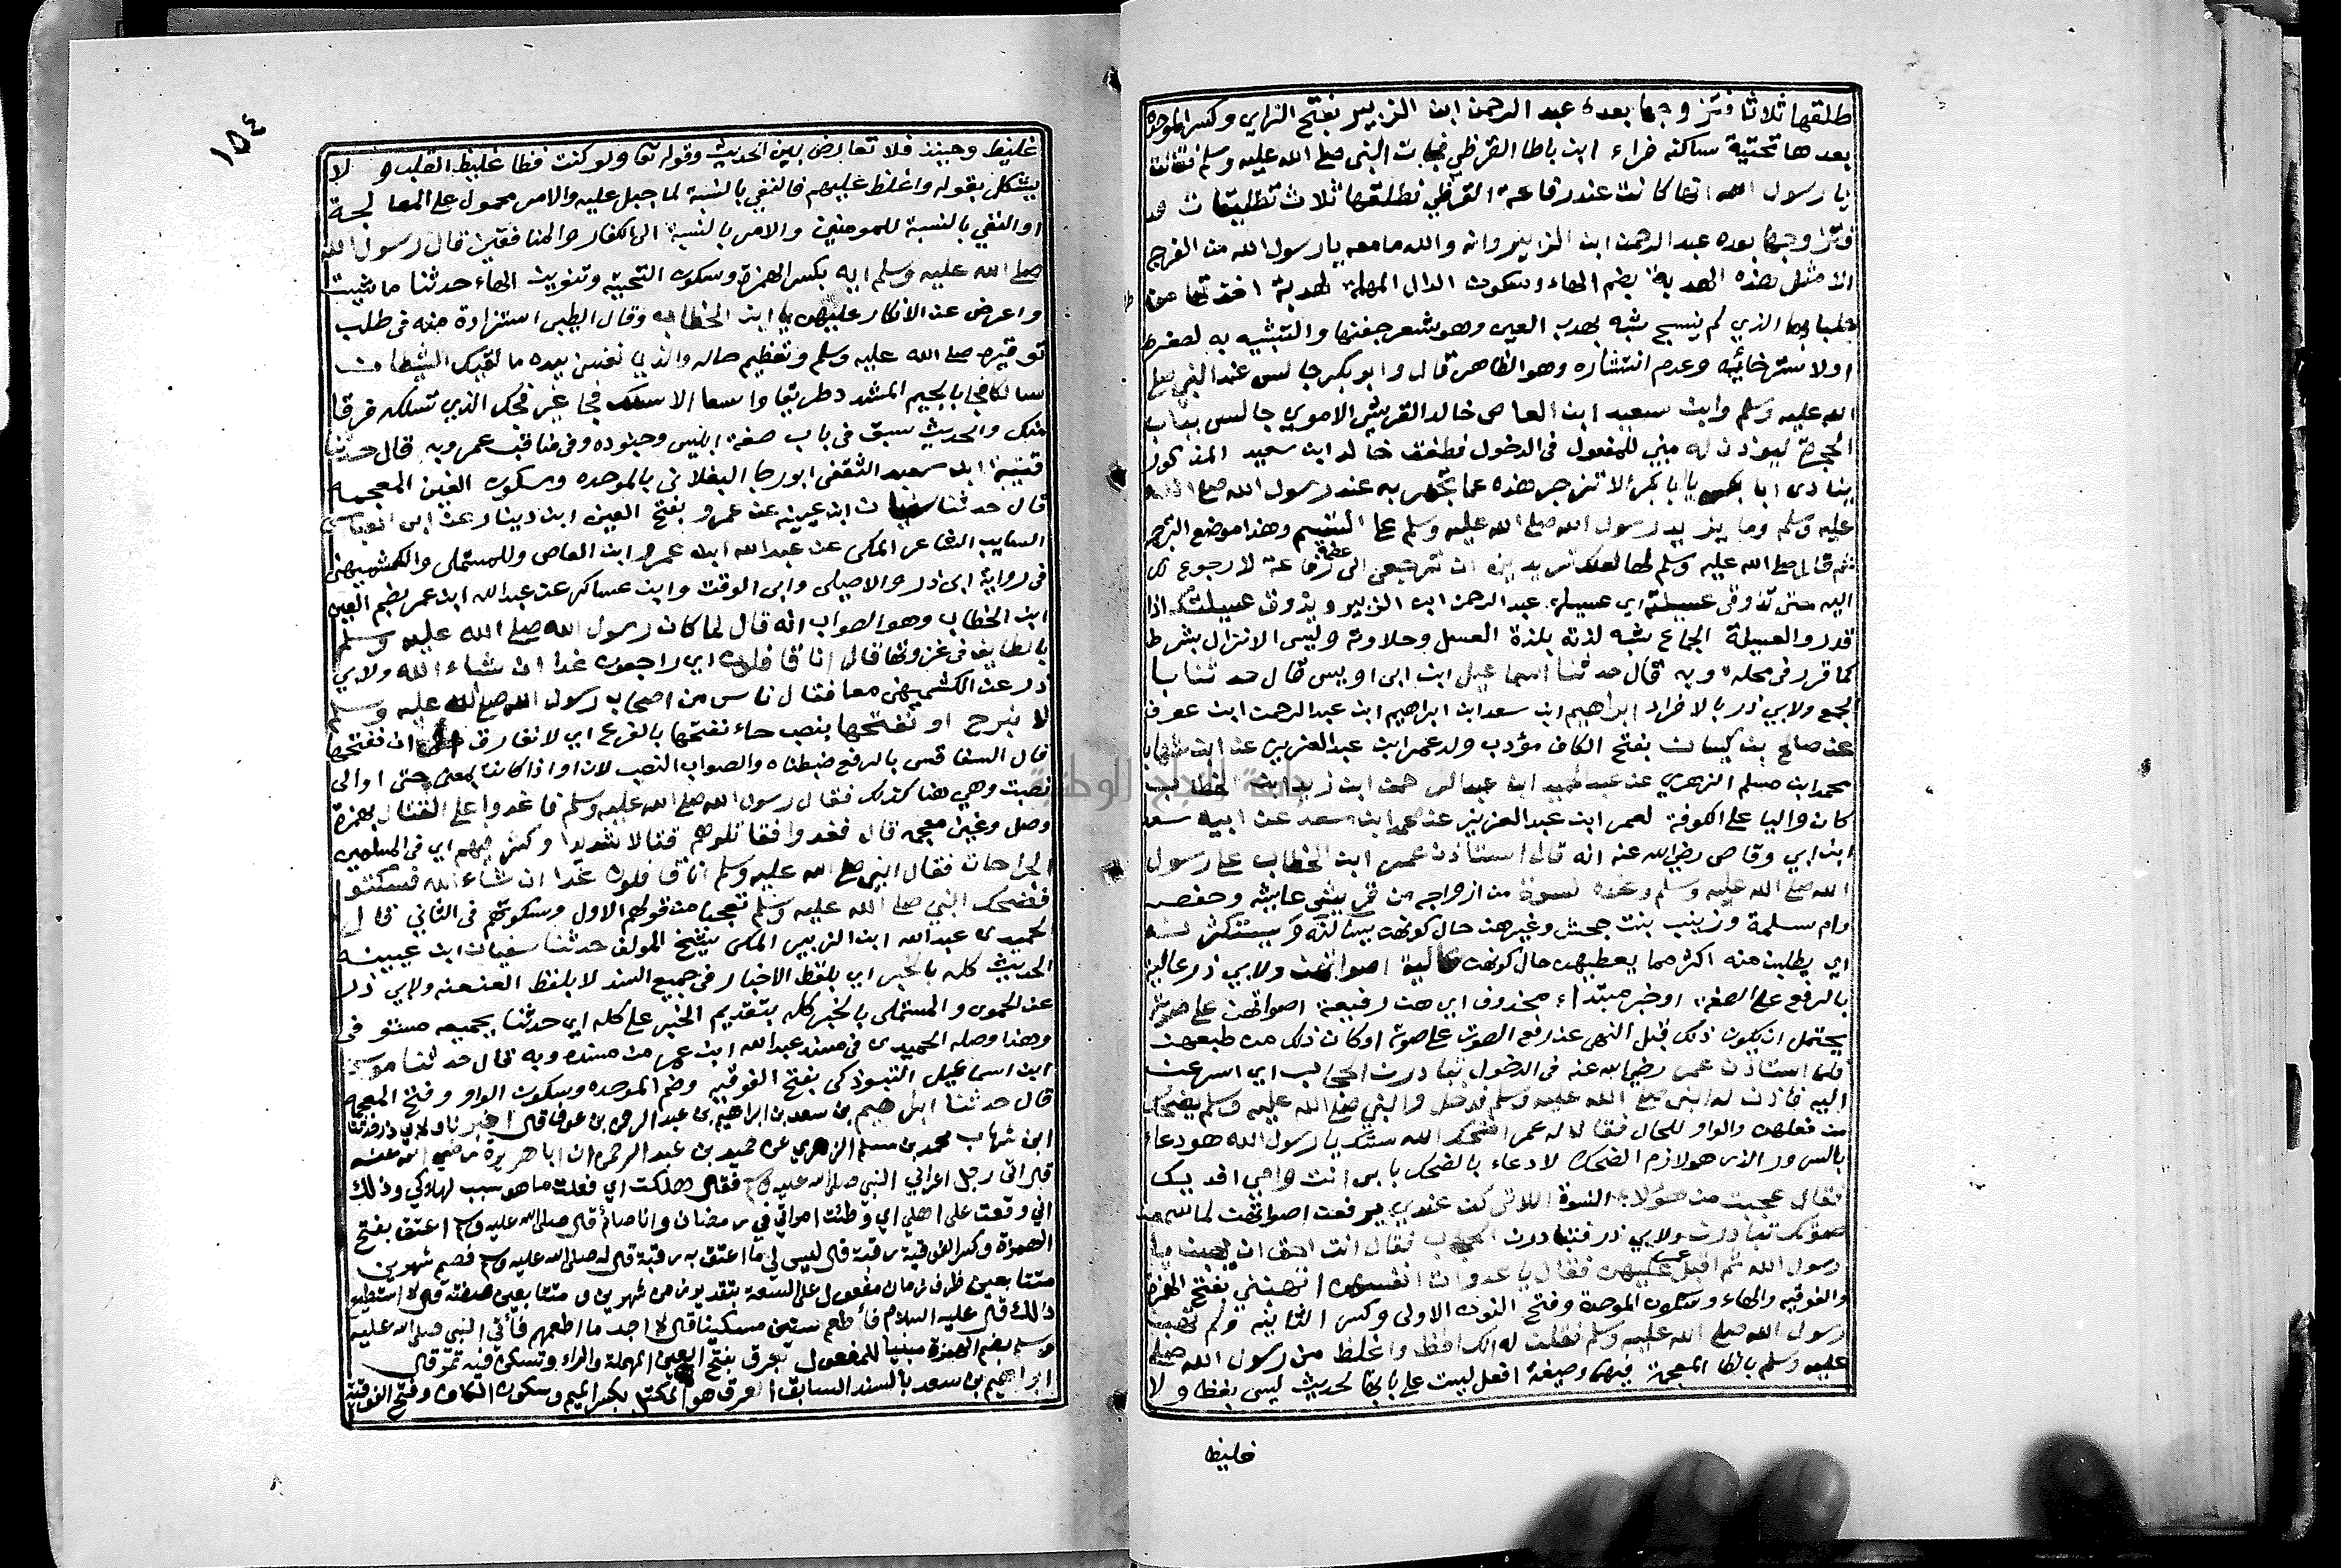 طلقها ثلاثا فتزوجها بعده عبد الرحمن ابن الزبير بفتح الزاي وكسر الموحدة
بعدها تحتية ساكنة فراء ابن باطا القرظي فجات النبي صلى الله عليه وسلم فقالت
يا رسول الله انها كانت عند رفاعة القرظي فطلقها ثلاث تطليقات
فتزوجها بعده عبد الرحمن ابن الزبير وانه والله ما معه يا رسول الله من الفرج
الا مثل هذه الهدبة بضم الهاء وسكون الدال المهملة لهدبة اخذتها من
جلبابها الذي لم ينسج شبه بهدب العين وهو شعر جفنها والتشبيه به لصغره
اولاسترخائيه وعدم انتشاره وهو الظاهر قال وابو بكر جالس عند النبي صلى
الله عليه وسلم وابن سعيد ابن العاص خالد القريشي الاموي جالس بباب
الحجرة ليوذن له مبني للمفعول في الدخول فطفق خالد ابن سعيد المذكور
ينادى ابا بكر يا ابا بكر الا تزجر هذه عما تجهر به عند رسول الله صلى الله
عليه وسلم وما يزيد رسول الله صلى الله عليه وسلم على التبسم وهذا موضع الترجمة
ثم قال صلى الله عليه وسلم لها لعلك تريدين ان ترجعي الى رفاعة لا رجوع لك
اليه حتى تذوقي عسيلته اي عسيلة عبد الرحمن ابن الزبير ويذوق عسيلتك اذا
قدر والعسيلة الجماع شبه لذته بلذة العسل وحلاوته وليس الانزال بشرط
كما قرر في محله وبه قال حدثنا اسماعيل ابن ابى اويس قال حدثنا با
لجمع ولابي ذر بالافراد ابراهيم ابن سعد ابن ابراهيم ابن عبد الرحمن ابن عوف
عن صالح بن كيسان بفتح الكاف مؤدب ولد عمر ابن عبد العزيز عن ابن شهاب
محمد ابن مسلم الزهري عن عبد الحميد ابن عبد الرحمن ابن زيد ابن الخطاب
كان واليا على الكوفة لعمر ابن عبد العزيز عن محمد ابن سعد عن ابيه سعد
ابن ابي وقاص رضي الله عنه انه قال استاذن عمر ابن الخطاب على رسول
الله صلى الله عليه وسلم وعنده نسوة من ازواجه من قريش عايشة وحفصه
وام سلمة وزينب بنت جحش وغيرهن حال كونهن يسالنه ويستكثرنه
اي يطلبن منه اكثر مما يعطيهن حال كونهن عالية اصواتهن ولابي ذر عالية
بالرفع على الصفة او خبر مبتداء محذوف اي هن رفيعة اصواتهن على صوته
يحتمل ان يكون ذلك قبل النهي عن رفع الصوت على صوته او كان ذلك من طبعهن
فلما استاذن عمر رضي الله عنه في الدخول تبادرن الحجاب اي اسرعن
اليه فاذن له النبي صلى الله عليه وسلم فدخل والنبي صلى الله عليه وسلم يضحك
من فعلهن والواو للحال فقال له عمر اضحك الله سنك يا رسول الله هو دعاء
بالسرور الذي هو لازم الضحك لا دعاء بالضحك بابي انت وامي افديك
فقال عجبت من هؤلاء النسوة اللاتي كن عندي يرفعن اصواتهن لما سمعن
صوتك تبادرن ولابي ذر فتبادرن الحجاب فقال انت احق ان يهبن يا
رسول الله ثم اقبل عليهن فقال يا عدوات انفسهن اتهبنني بفتح الهمزة
والفوقيه والهاء وسكون الموحدة وفتح النون الاولى وكسر الثانيه ولم تهبن
رسول الله صلى الله عليه وسلم فقلن له انك افظ واغلظ من رسول الله صلى
عليه وسلم بالظا المعجمة فيهما وصيغة افعل ليست على بابها لحديث ليس بفظ ولا
غليظ
١٥٤
غليظ وحينئذ فلا تعارض بين الحديث وقوله تعا ولو كنت فظا غليظ القلب ولا
يشكل بقوله واغلظ عليهم فالنفي بالنسبة لما جبل عليه والامر محمول على المعالجة
او النفي بالنسبة للمومنين والامر بالنسبة الى الكفار والمنافقين قال رسول الله
صلى الله عليه وسلم ايه بكسر الهمزة وسكون التحتية وتنوين الهاء حدثنا ما شيت
واعرض عن الانكار عليهن يا ابن الخطاب وقال الطيبي استزادة منه في طلب
توقيره صلى الله عليه وسلم وتعظيم حاله والذي نفسي بيده ما لقيك الشيطان
سالكا فجا بالجيم المشدد طريقا واسعا الا سلك فجا غير فجك الذي تسلكه فرقا
منك والحديث سبق في باب صفة ابليس وجنوده وفي مناقب عمر وبه قال حدثنا
قتيبة ابن سعيد الثقفي ابو رجا البغلاني بالموحده وسكون الغين المعجمه
قال حدثنا سفيان ابن عيينه عن عمرو بفتح العين ابن دينار عن ابي العباس
السايب الشاعر المكي عن عبد الله ابن عمرو ابن العاص وللمستملى والكشميهني
في رواية ابي ذر والاصيلى وابي الوقت وابن عساكر عن عبد الله ابن عمر بضم العين
ابن الخطاب وهو الصواب انه قال لما كان رسول الله صلى الله عليه وسلم
بالطايف في غزوتها قال انا قافلون اي راجعون غدا ان شاء الله ولابي
ذر عن الكشميهني معا فقال ناس من اصحاب رسول الله صلى الله عليه وسلم
لا نبرح او نفتحها بنصب حاء نفتحها بالفرع اي لا نفارق الى ان نفتحها
قال السفاقسي بالرفع ضبطناه والصواب النصب لان او اذا كانت بمعنى حتى او الى
نصبت وهي هنا كذلك فقال رسول الله صلى الله عليه وسلم فاغدوا على القتال بهمزة
وصل وغين معجمه قال فغدوا فقاتلوهم قتالا شديدا وكثر فيهم اي في المسلمين
الجراحات فقال النبي صلى الله عليه وسلم انا قافلون غدا ان شاء الله فسكتوا
فضحك النبي صلى الله عليه وسلم تعجبا من قولهم الاول وسكوتهم في الثاني قال
الحميدي عبد الله ابن الزبير المكي شيخ المولف حدثنا سفيان ابن عيينه
الحديث كله بالخبر اي بلفظ الاخبار في جميع السند لا بلفظ العنعنه ولابي ذر
عن الحموي والمستملى بالخبر كله بتقديم الخبر على كله اي حدثنا بجميعه مستوفي
وهذا وصله الحميدي في مسند عبد الله ابن عمر من مسنده وبه قال حدثنا موسى
ابن اسماعيل التبوذكي بفتح الفوقيه وضم الموحده وسكون الواو وفتح المعجمه
قال حدثنا ابراهيم بن سعد بن ابراهيم بن عبد الرحمن بن عوف قال اخبرنا ولابي ذر حدثنا
ابن شهاب محمد بن مسلم الزهري عن حميد بن عبد الرحمن ان ابا هريرة رضي الله عنه
قال اتى رجل اعرابي النبي صلى الله عليه وسلم فقال هلكت اي فعلت ما هو سبب لهلاكي وذلك
اني وقعت على اهلي اي وطئت امراتي في رمضان وانا صائم قال صلى الله عليه وسلم اعتق بفتح
الهمزة وكسر الفوقية رقبة قال ليس لي ما اعتق به رقبة قال له صلى الله عليه وسلم فصم شهرين
متتابعين ظرف زمان مفعول على السعة بتقدير زمن شهرين ومتتابعين صفته قال لا استطيع
ذالك قال عليه السلام فأطعم ستين مسكينا قال لا اجد ما اطعمهم فأتي النبي صلى الله عليه
وسلم بضم الهمزة مبنيا للمفعول بعرق بفتح العين المهملة والراء وتسكن فيه تمر قال
ابراهيم بن سعد بالسند السابق العرق هو المكتل بكسر الميم وسكون الكاف وفتح الفوقية